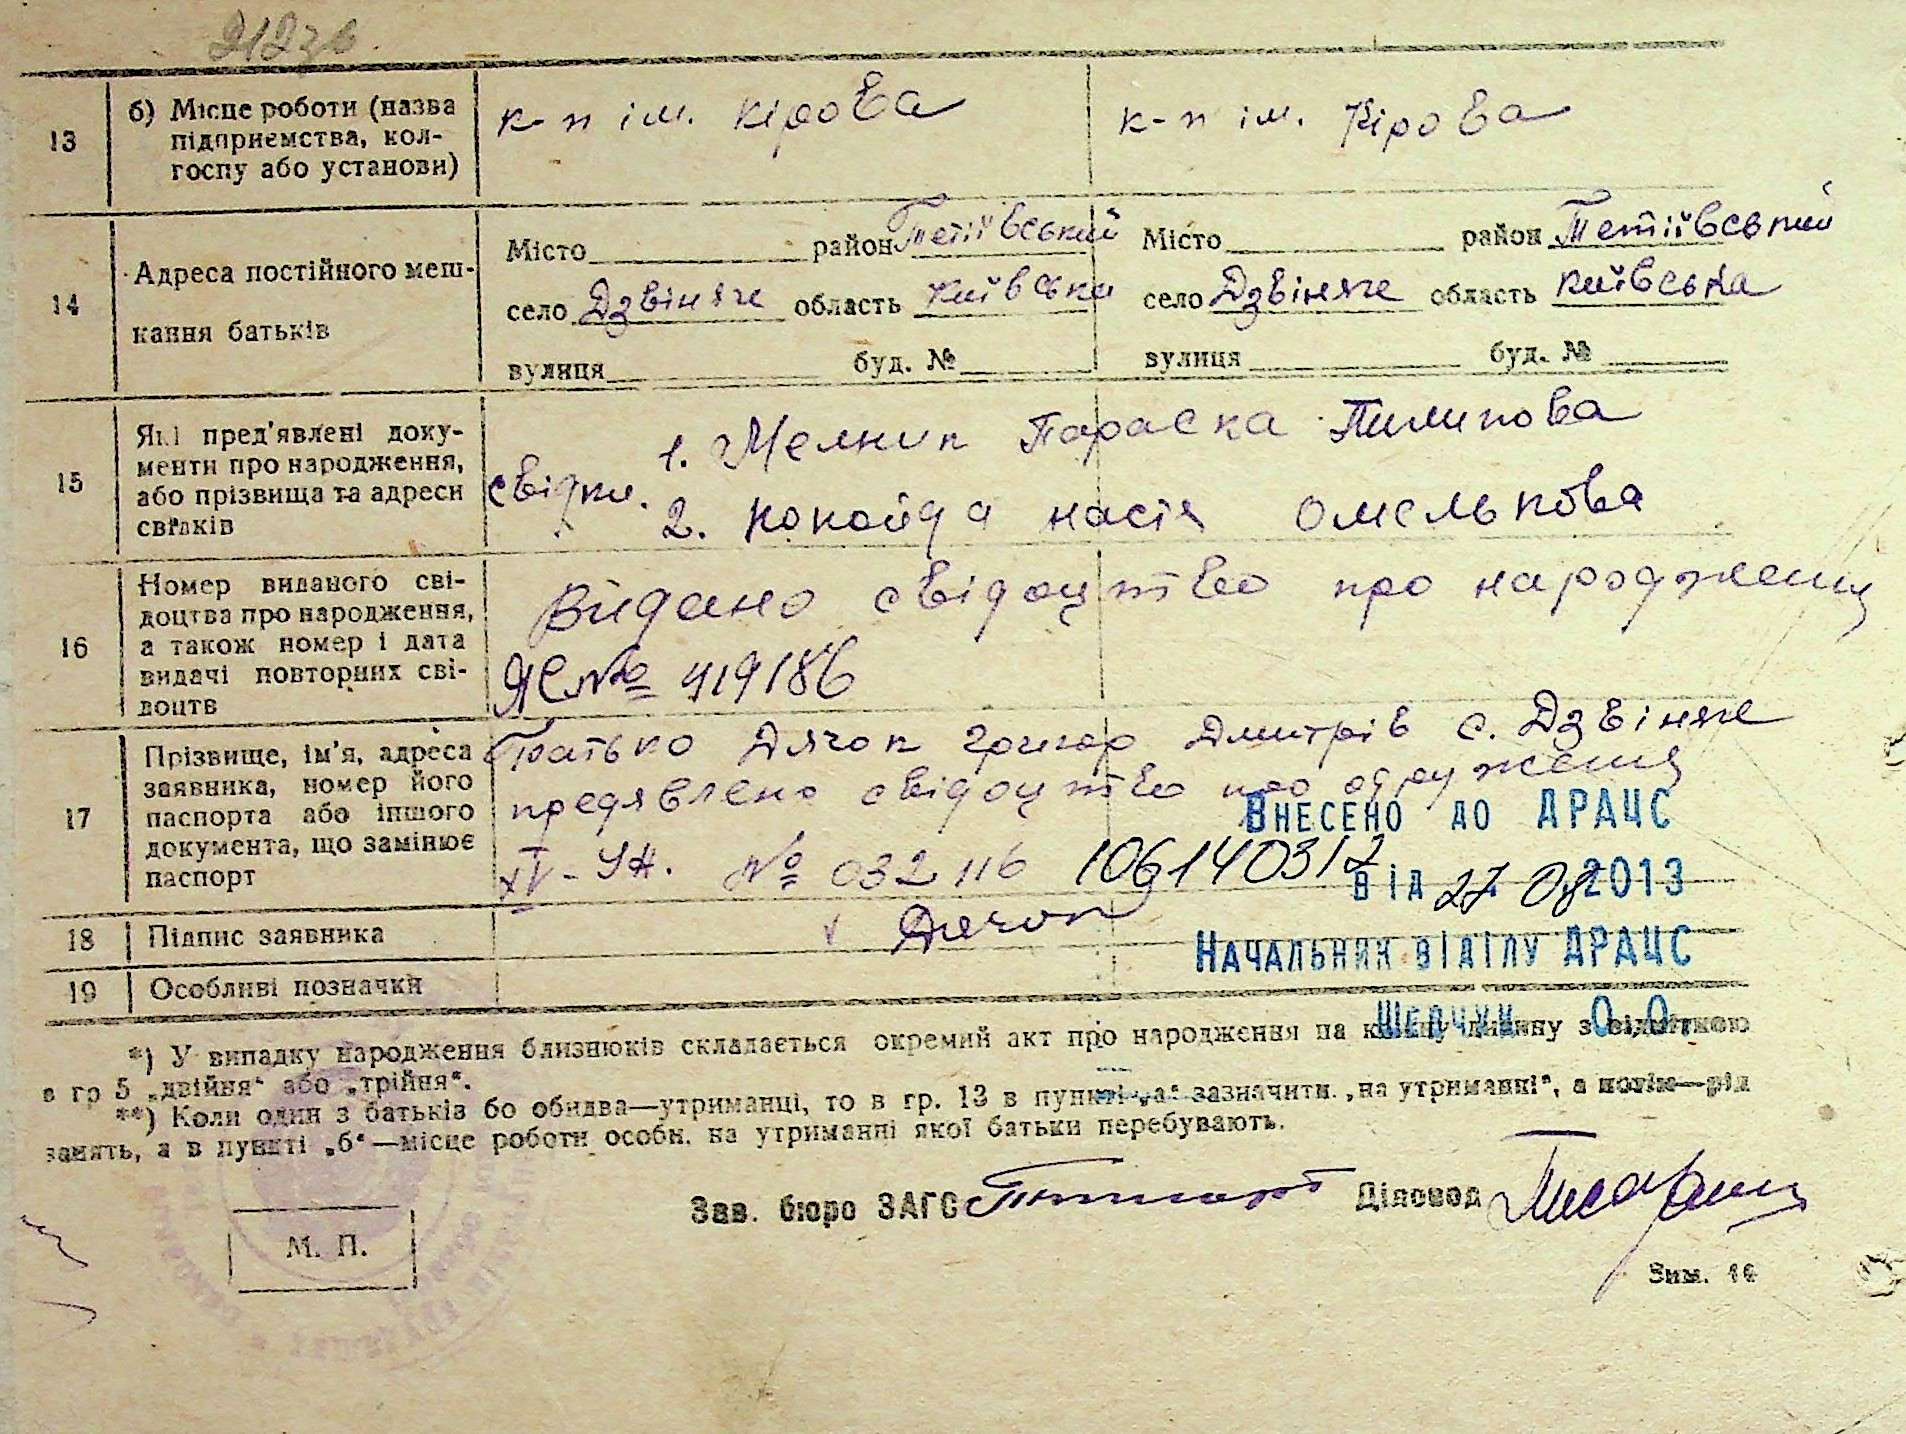 212зв
13
б) Місце роботи (назва
підприємства, кол-
госпу або установи)
к-п ім. Кірова
к-п ім. Кірова
14
Адреса постійного меш-
кання батьків
Місто район Тетіївський
село Дзвіняче область Київська
вулиця буд. №
Місто район Тетіївський
село Дзвіняче область Київська
вулиця буд. №
15
Які пред'явлені доку-
менти про народження,
або прізвища та адреси
свідків
свідки.
1. Мелник Параска Пилипова
2. Кокойда Настя Омелькова
16
Номер виданого сві-
доцтва про народження,
а також номер і дата
видачі повторних сві-
доцтв
Видано свідоцтво про народження
ЯС № 419186
17
Прізвище, ім'я, адреса
заявника, номер його
паспорта або іншого
документа, що замінює
паспорт
Батько Дячок Григор Дмитрів с. Дзвіняче
предявлено свідоцтво про одруження
XV-УН. № 032116
106140312
Внесено до ДРАЦС
від 27 08 2013
Начальник відділу ДРАЦС
Шевчук О.О.
18
Підпис заявника
v Дячок
19
Особливі позначки
*) У випадку народження близнюків складається окремий акт про народження на кожну дитину з відміткою
в гр 5 „двійня“ або „трійня“.
**) Коли один з батьків бо обидва—утриманці, то в гр. 13 в пункті „а“ зазначити „на утриманні“, а потім—рід
занять, а в пункті „б“—місце роботи особи, на утриманні якої батьки перебувають.
М. П.
Зав. бюро ЗАГС
Діловод
Зам. 10